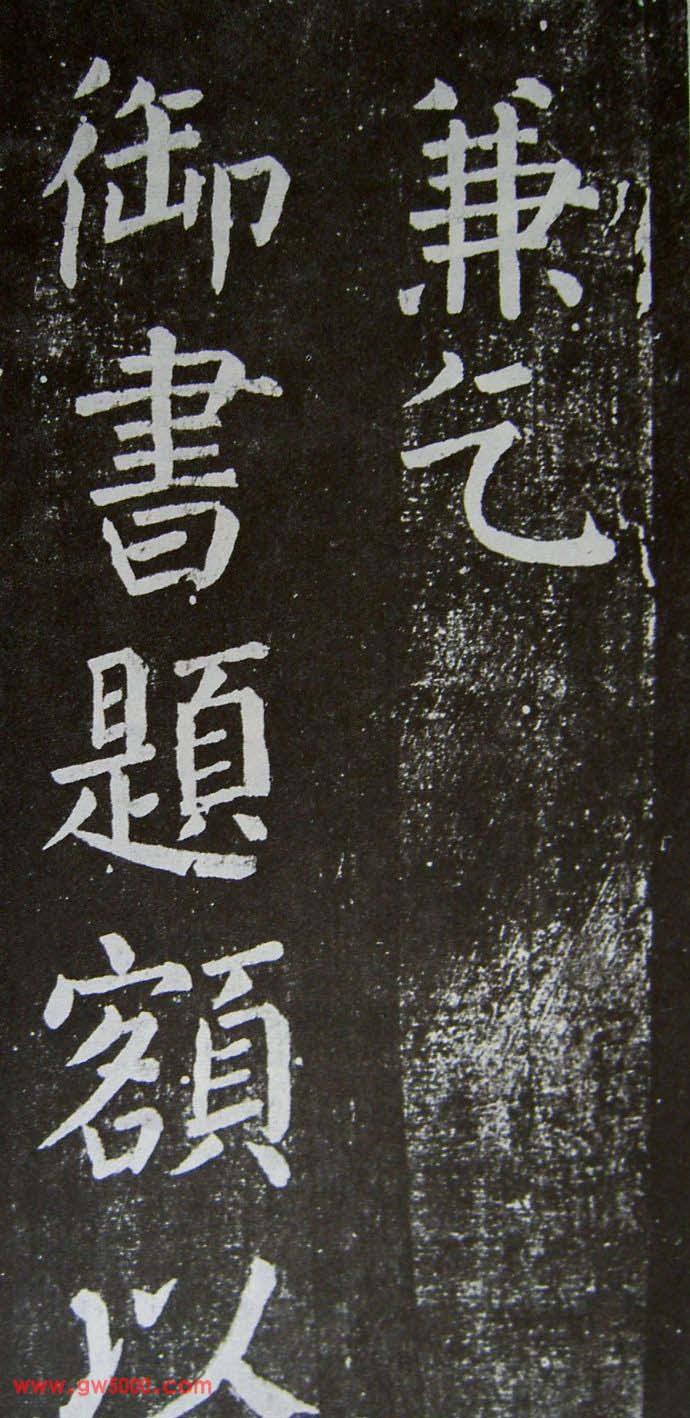 兼乞
御書題額以
www.gw5000.com